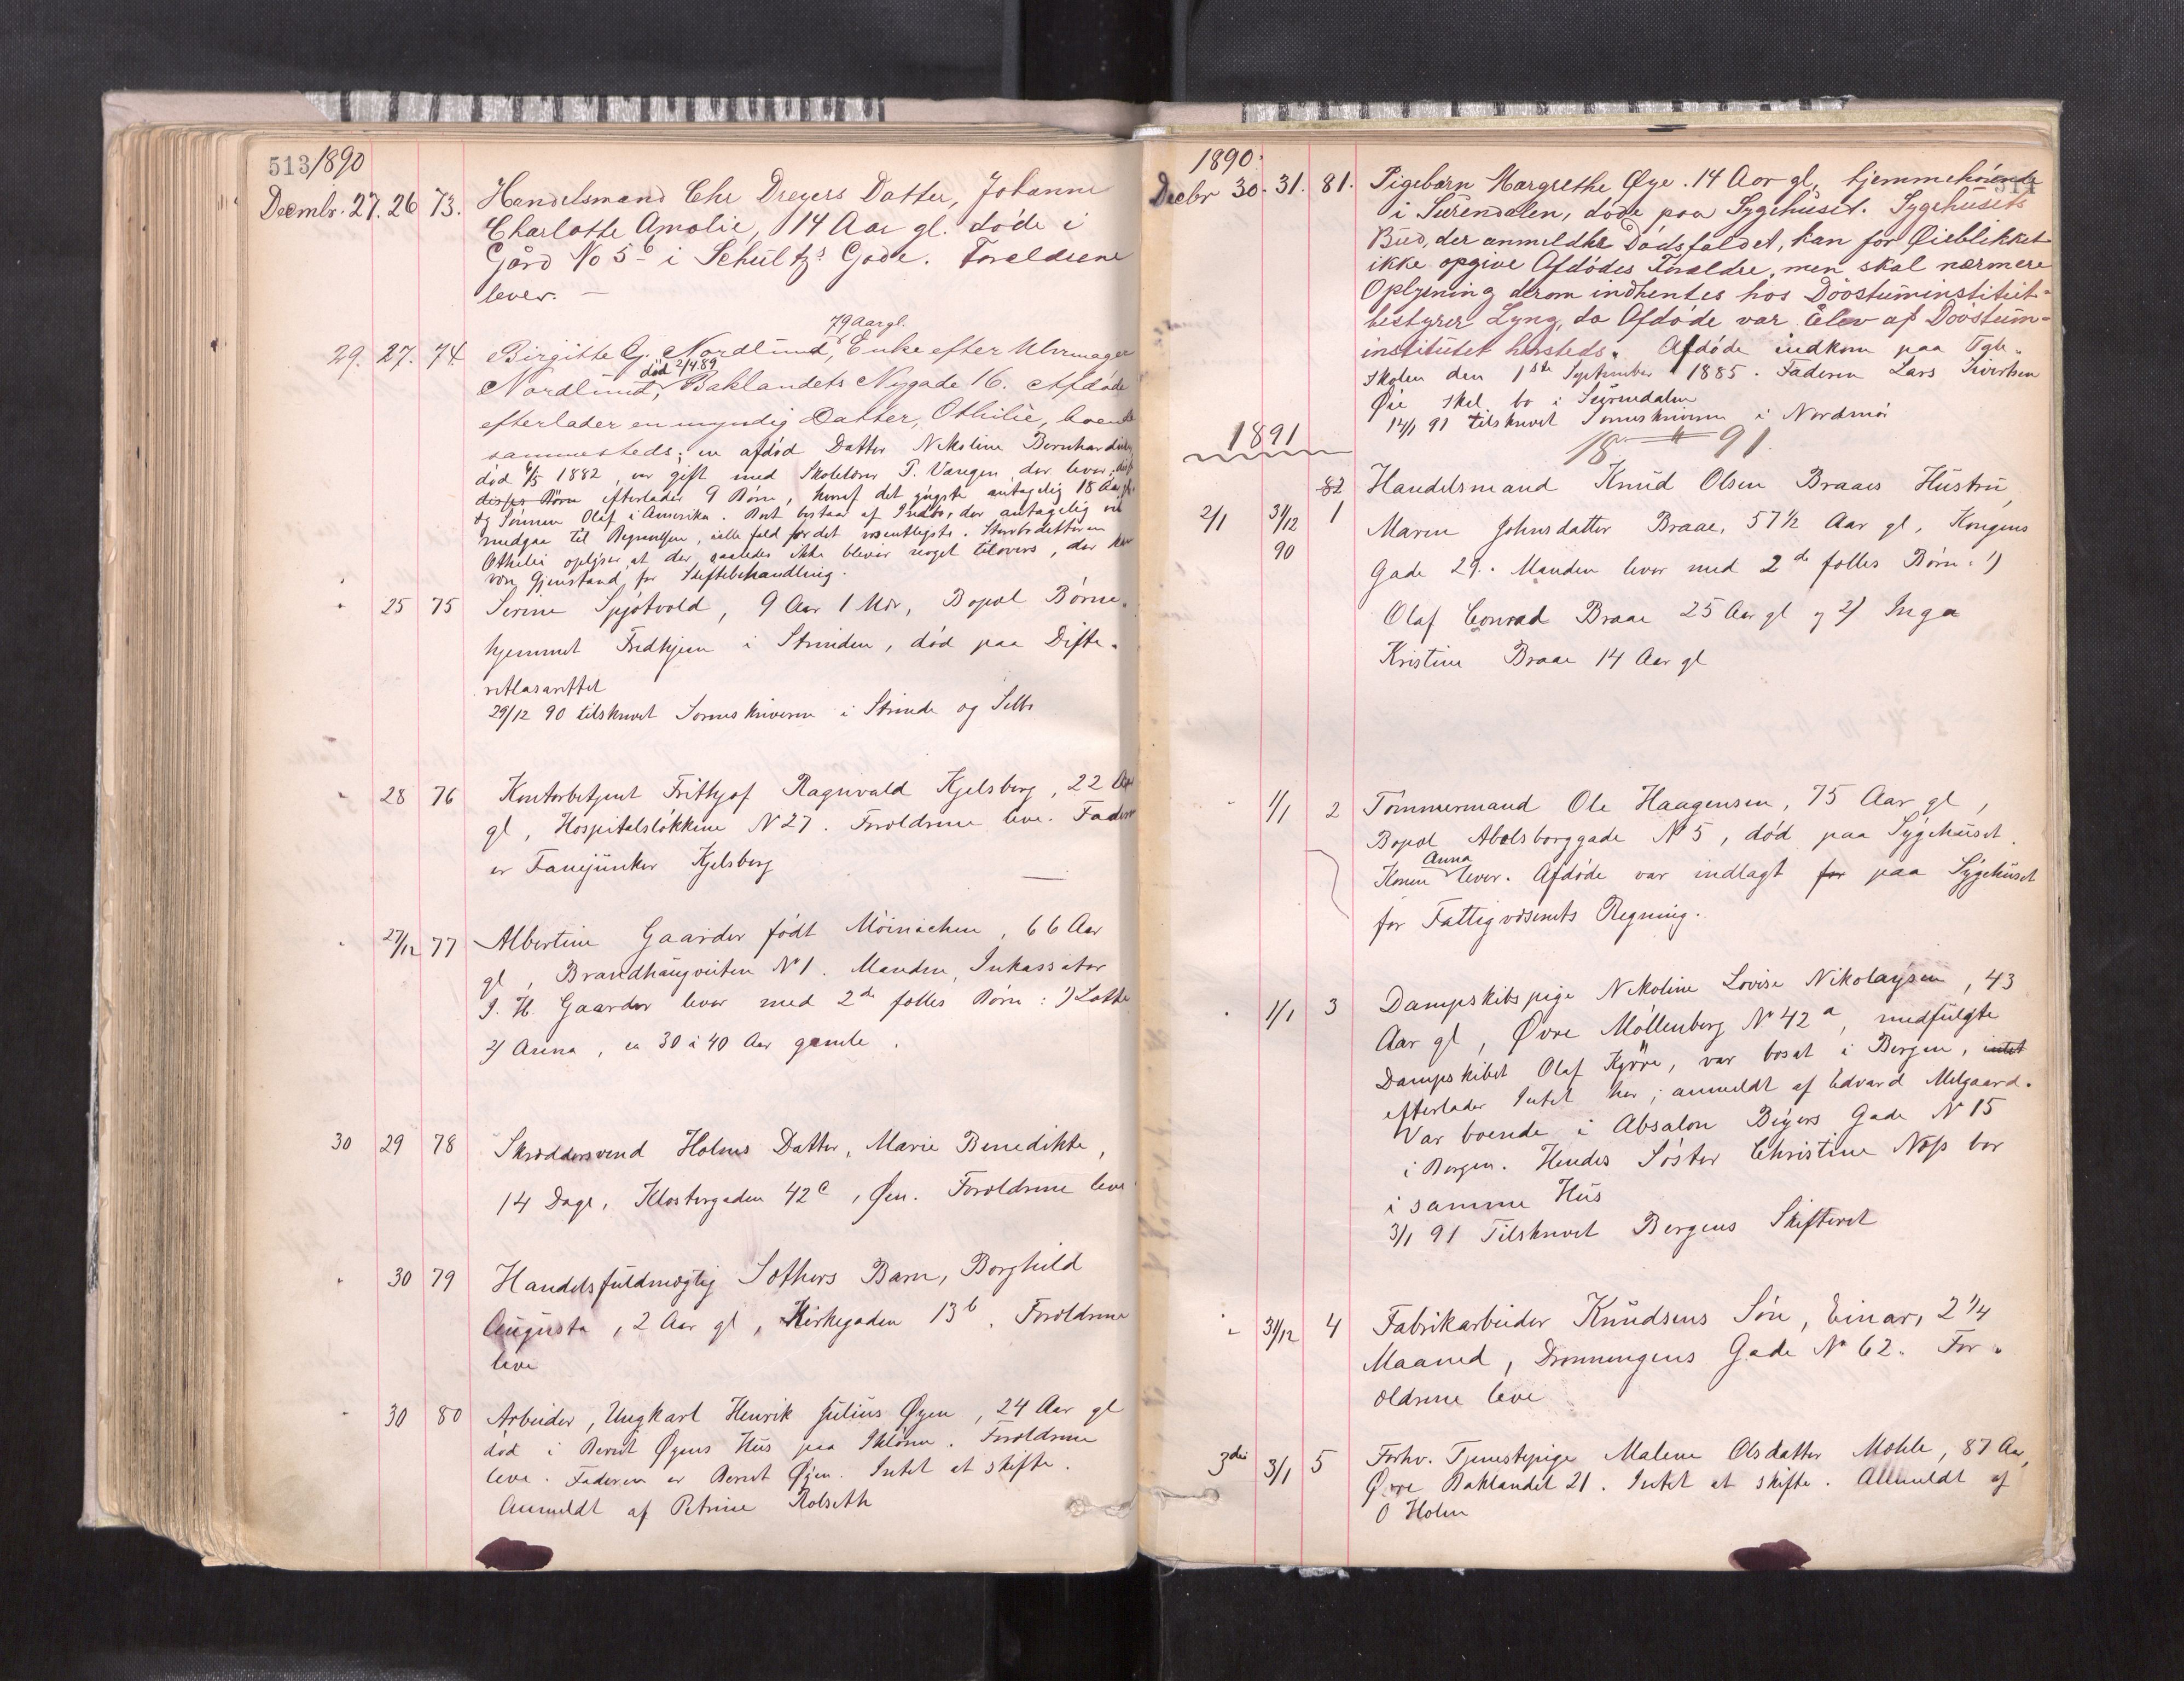 513 1890
Decembr. 27. 26 73. Handelsmand Chr Dreyers Datter, Johanne
Charlotte Amalie, 14 Aar gl. døde i
Gård No 5 i Schultz's Gade. Forældrene
lever. —
79 Aar gl.
29. 27. 74 Birgitte G. Nordlund, Enke efter Uhrmager
død 2/4 89
Nordlund, Baklandets Nygade 16. Afdøde
efterlader en myndig Datter, Othilie, boende
sammesteds; en afdød Datter Nikoline Bernhardine,
død 6/5 1882, var gift med Skolelærer P. Vangen der lever;
disses Børn efterlader 9 Børn, hvoraf det yngste antagelig 18 Aar gl.
og Sønnen Olaf i Amerika. Boet bestaar af Indbo, der antagelig vil
medgaa til Begravelsen, ialle fald for det væsentligste. Stervbodatteren
Othilie oplyser, at der saaledes ikke bliver noget tilovers, der kan
være Gjenstand for Skiftebehandling.
" 25 75 Serine Spjøtvold, 9 Aar 1 Mdr, Bopæl Børne-
hjemmet Fredhjem i Strinden, død paa Difte-
ritlasarettet
29/12 90 tilskrevet Sorenskriveren i Strinde og Selbu
" 28 76 Kontorbetjent Frithjof Ragnvald Kjelsberg, 22 Aar
gl, Hospitalsløkkene N 27. Forældrene leve. Faderen
er Fanejunker Kjelsberg
" 27/12 77 Albertine Gaarder født Møinichen, 66 Aar
gl, Brandhaugveiten N 1. Manden, Inkassator
J. H. Gaarder lever med 2de fælles Børn: 1) Lotte
2) Anna, ca 30 à 40 Aar gamle.
30 29 78 Skræddersvend Holms Datter, Marie Benedikte,
14 Dage, Klostergaden 42 c, Øen. Forældrene leve
" 30 79 Handelsfuldmægtig Sothers Barn, Borghild
Augusta, 2 Aar gl, Kirkegaden 13 b. Forældrene
leve
" 30 80 Arbeider, Ungkarl Henrik Julius Øyen, 24 Aar gl
død i Bernt Øyens Hus paa Ihlen. Forældrene
leve. Faderen er Bernt Øyen. Intet at skifte.
Anmeldt af Petrine Rolseth
1890. 514
Decbr 30. 31. 81. Pigebarn Margrethe Øye. 14 Aar gl, hjemmehørende
i Surendalen, døde paa Sygehuset. Sygehusets
Bud, der anmeldte Dødsfaldet, kan for Øieblikket
ikke opgive Afdødes Forældre, men skal nærmere
Oplysning derom indhentes hos Døvstuminstitut-
bestyrer Lyng, da Afdøde var Elev af Døvstum-
institutet hersteds. Afdøde indkom paa
skolen den 1ste September 1885. Faderen Lars Sivertsen
Øie skal bo i Surendalen
14/1 91 tilskrevet Sorenskriveren i Nordmør
1891 18 91
82 Handelsmand Knud Olsen Braaes Hustru
2/1 31/12 90 1 Maren Johnsdatter Braae, 57 1/2 Aar gl, Kongens
Gade 29. Manden lever med 2de fælles Børn: 1)
Olaf Conrad Braae 25 Aar gl og 2) Inga
Kristine Braae 14 Aar gl
" 1/1 2 Tømmermand Ole Haagensen, 75 Aar gl,
Bopæl Abelsborggade N 5, død paa Sygehuset.
Anna
Konen lever. Afdøde var indlagt for paa Sygehuset
for Fattigvæsenets Regning.
" 1/1 3 Dampskibspige Nikoline Lovise Nikolaysen, 43
Aar gl, Øvre Møllenberg N 42 a, medfulgte
Dampskibet Olaf Kyrre, var bosat i Bergen, intet
efterlader Intet her; anmeldt af Edvard Melgaard.
Var boende i Absalon Beyers Gade N 15
i Bergen. Hendes Søster Christine Næss bor
i samme Hus
3/1 91 Tilskrevet Bergens Skifteret
" 31/12 4 Fabrikarbeider Knudsens Søn, Einar, 2 1/4
Maaned, Dronningens Gade N 62. For-
ældrene leve
3die 3/1 5 Forhv. Tjenestepige Malene Olsdatter Mohle, 87 Aar,
Øvre Baklandet 21. Intet at skifte. Anmeldt af
O Holm